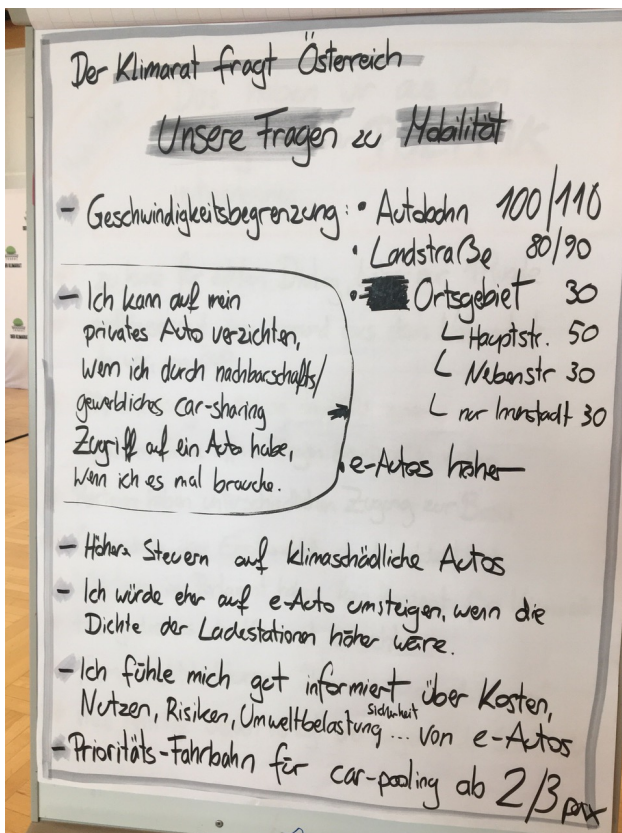 Der Klimarat fragt Österreich
Unsere Fragen zu Mobilität
- Geschwindigkeitsbegrenzung: • Autobahn 100/110
• Landstraße 80/90
• Ortsgebiet 30
Hauptstr. 50
Nebenstr 30
nur Innenstadt 30
• e-Autos höher
- Ich kann auf mein
privates Auto verzichten,
wenn ich durch nachbarschafts/
gewerbliches car-sharing
Zugriff auf ein Auto habe,
wenn ich es mal brauche.
- Höhere Steuern auf klimaschädliche Autos
- Ich würde eher auf e-Auto umsteigen, wenn die
Dichte der Ladestationen höher wäre.
- Ich fühle mich gut informiert über Kosten,
Nutzen, Risiken, Umweltbelastung Sicherheit ... von e-Autos
- Prioritäts-Fahrbahn für car-pooling ab 2/3 pax